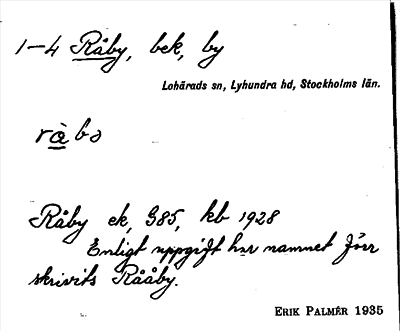 1-4 Råby, bek, by
Lohärads sn, Lyhundra hd, Stockholms län.
rå̀bə
Råby ek, G85, kb 1928
Enligt uppgift har namnet förr
skrivits Rååby.
ERIK PALMÉR 1935